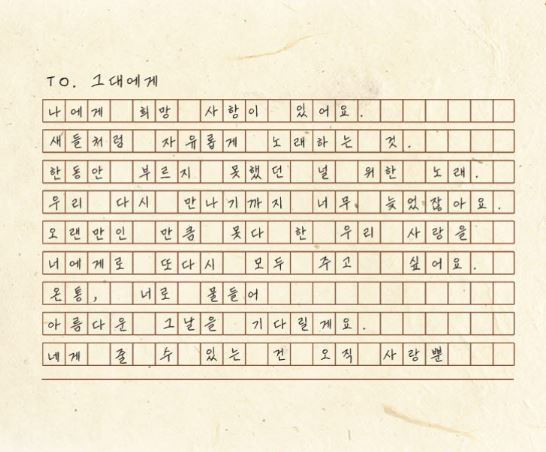 TO. 그대에게
나에게 희망 사항이 있어요.
새들처럼 자유롭게 노래하는 것.
한동안 부르지 못했던 널 위한 노래.
우리 다시 만나기까지 너무 늦었잖아요.
오랜만인 만큼 못다 한 우리 사랑을
너에게로 또다시 모두 주고 싶어요.
온통, 너로 물들어
아름다운 그날을 기다릴게요.
네게 줄 수 있는 건 오직 사랑뿐